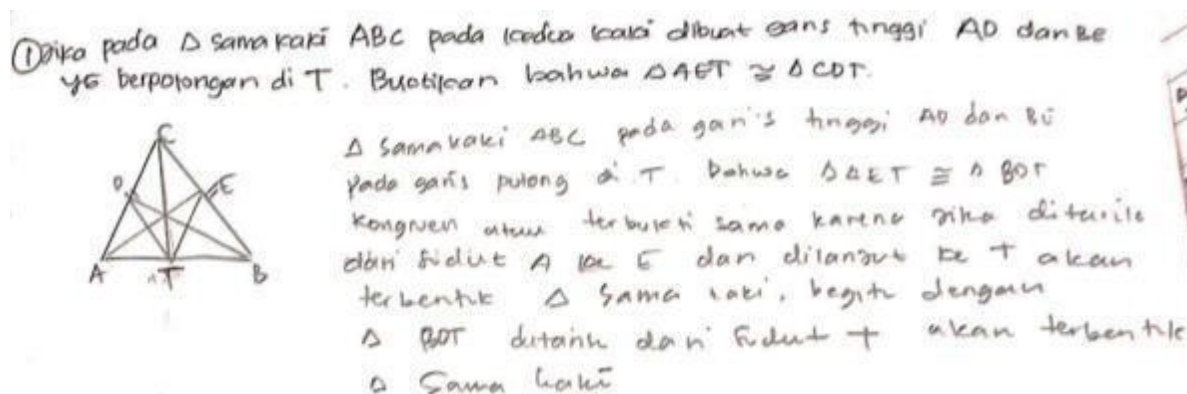 ① Jika pada Δ samakaki ABC pada kedua kaki dibuat garis tinggi AD dan BE
yg berpotongan di T. Buktikan bahwa ΔAET ≅ Δ CDT.
C
D
E
A
T
B
Δ samakaki ABC pada garis tinggi AD dan BE
pada garis potong di T bahwa ΔAET ≅ Δ BDT
kongruen atau terbukti sama karena jika ditarik
dari sudut A ke E dan dilanjut ke T akan
terbentuk Δ sama kaki, begitu dengan
Δ BDT ditarik dari sudut T akan terbentuk
Δ Sama kaki